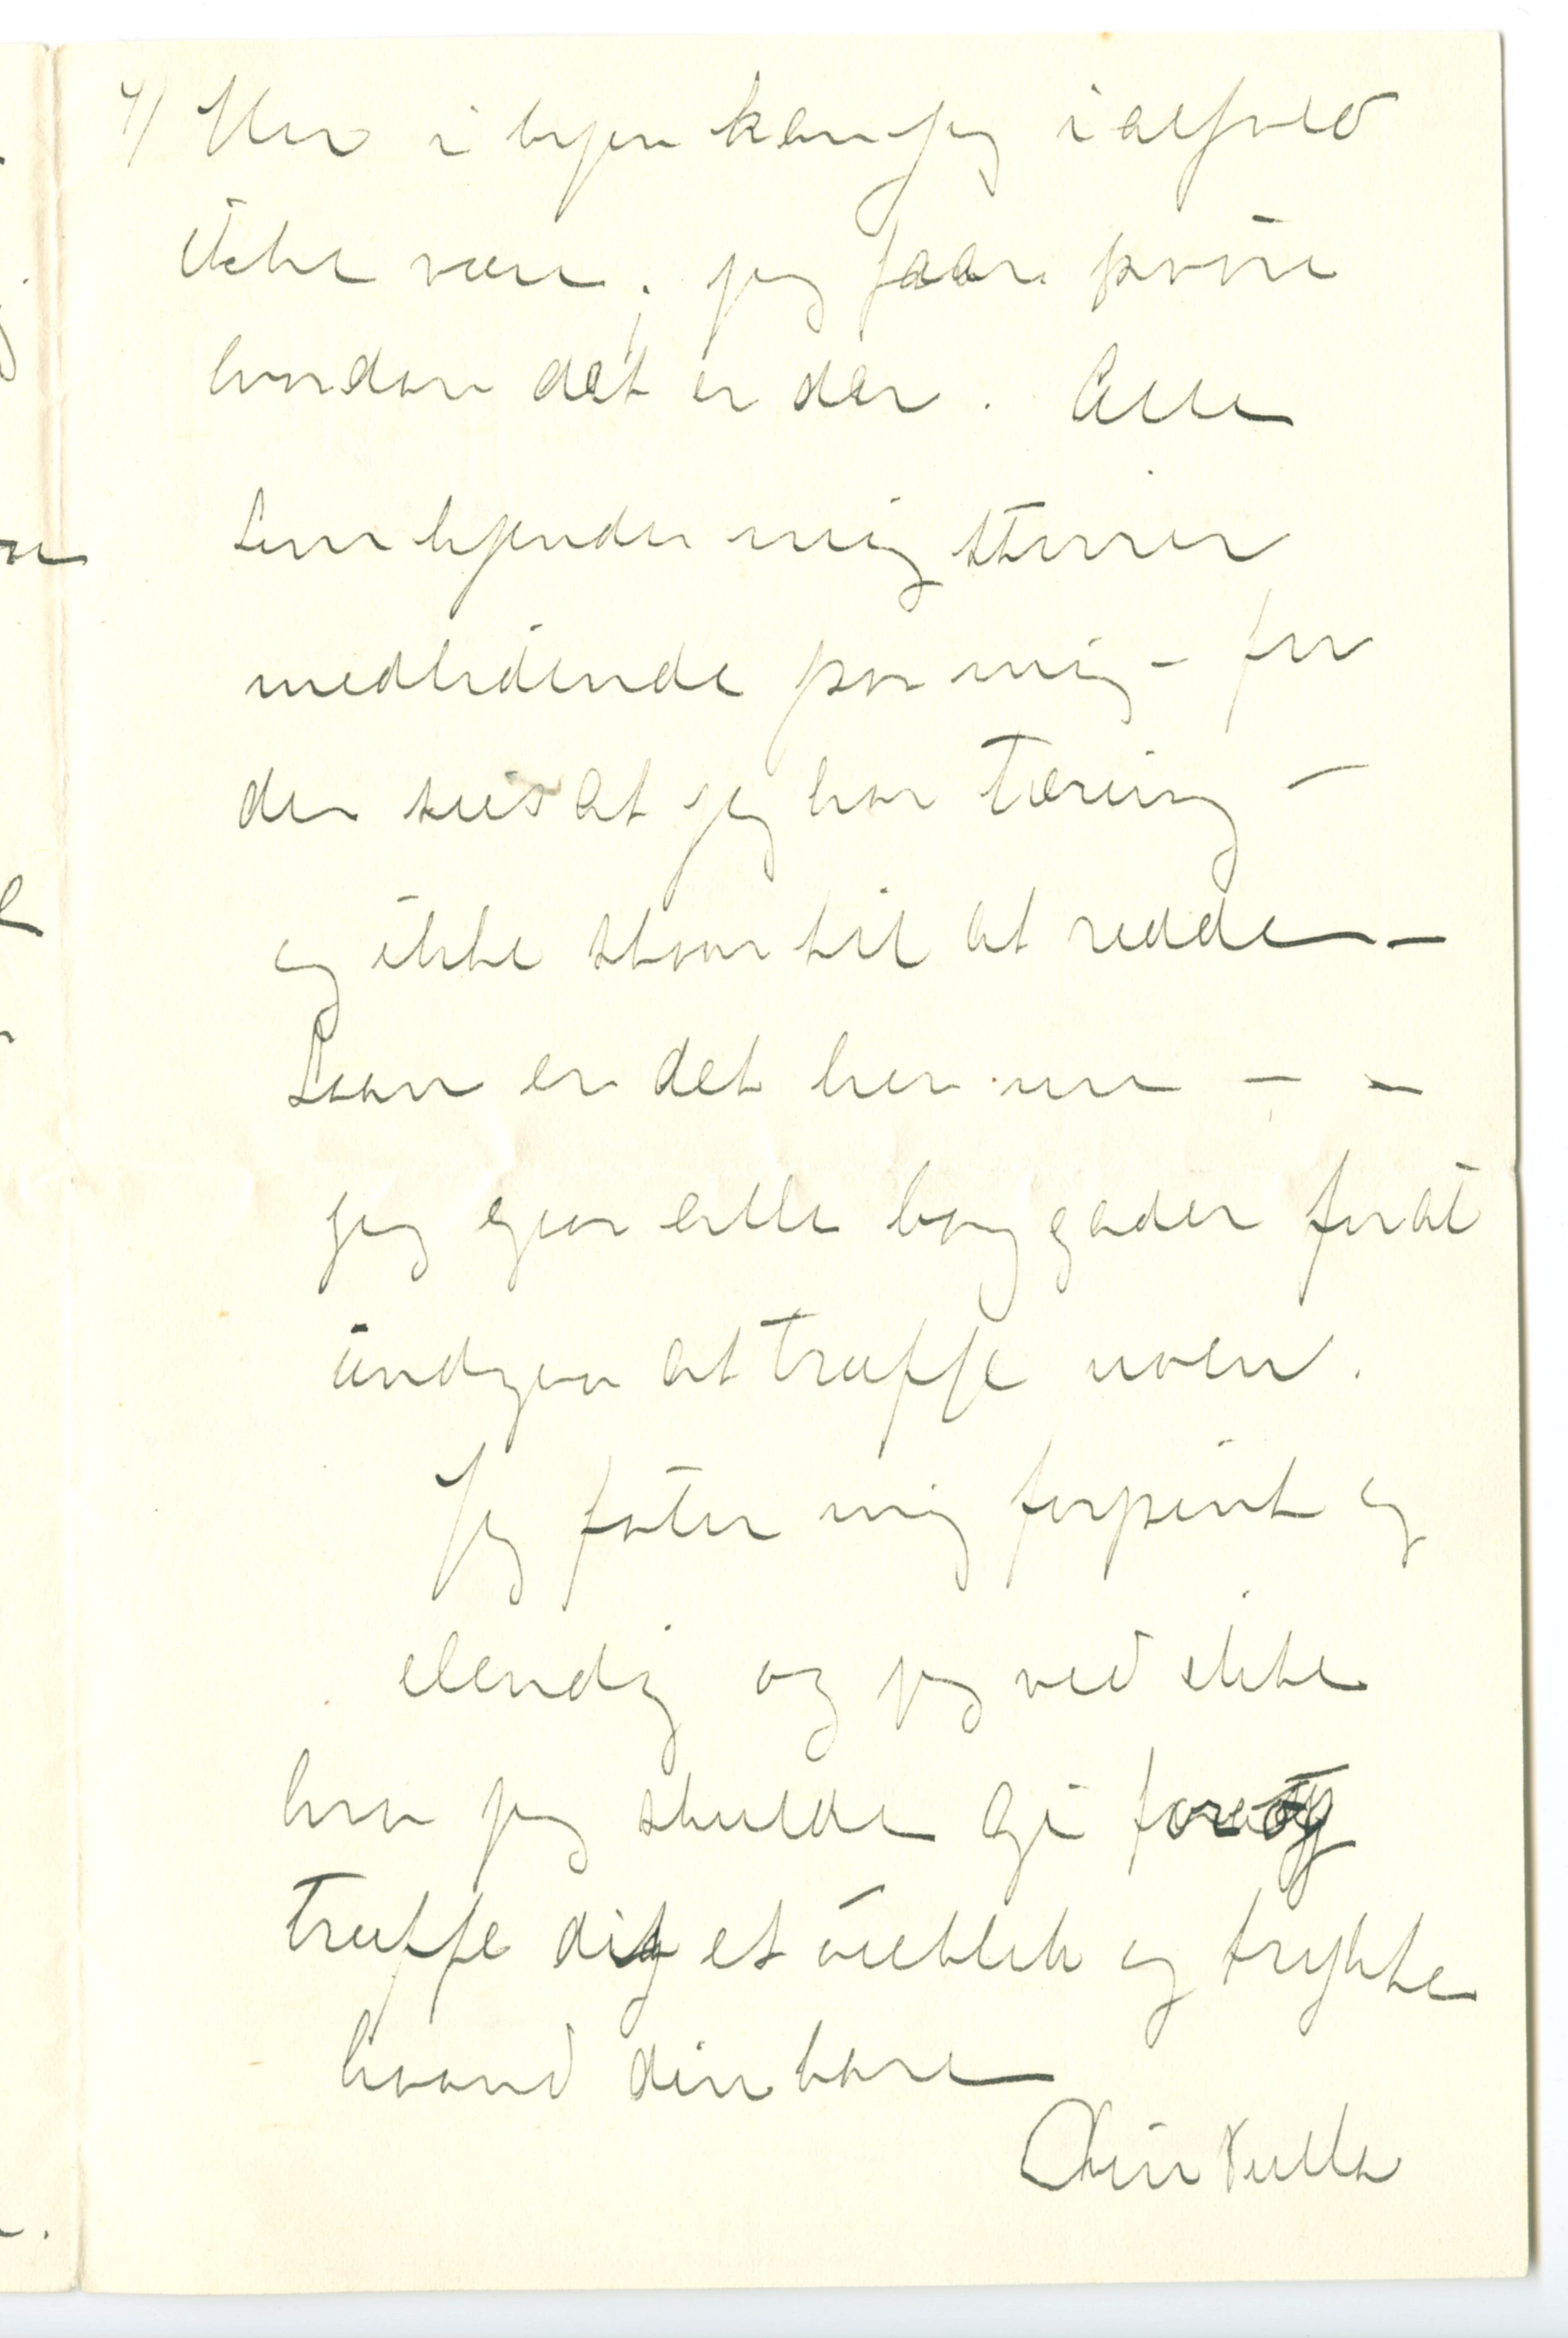 4/ Her i byen kan jeg ialfald
ikke være; jeg faar prøve
hvordan det er der. Alle
som kjender mig stirrer
medlidende paa mig – for
der sies at jeg har tæring –
og ikke staar til at redde –
Saan er det her nu – –
jeg gaar alle baggader forat
undgaa at træffe noen.
Jeg føler mig forpint og
elendig og jeg ved ikke
hva jeg skulde gi for at
træffe dig et øieblik og trykke
haand din bare
Din Tulla